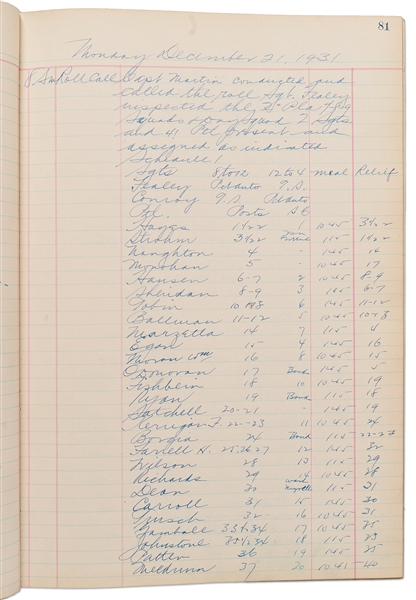 81
Monday December 21, 1931
Roll Call Capt Martin conducted and
called the roll Sgt. Fealey
inspected the 2nd Pla 7 8 9
Squads & Day Squad 2 Sgts
and 41 Ptl. present and
assigned as indicated
Schedule 1
Sgts 8 to 12 12 to 4 meal Relief
Fealey Pct auto 9.S.
Conroy 9.S Pct auto
Ptl. Posts
Hayes 1 & 22 1 1045 3 & 22
Strohm 3 & 22 115 1 & 22
Naughton 4 - 145 14
Monohan 5 - 1045 17
Hansen 6-7 2 1045 8-9
Sheridan 8-9 3 145 6-7
Tobin 6 145 11-12
Ballman 11-12 5 1045
Marzetta 14 7 115 4
Egan 15 4 145 16
wm 16 8 1045 15
O'Donovan 17 Bond 145 5
Fishbein 18 10 1045 19
Ryan 19 Bond 115 18
Satchell 20-21 - 145 19
Kerrigan F. 22-23 11 1045 24
Borgia 24 Bond 115 22-23
Farrell H. 25 26 27 12 145 32
Wilson 28 13 115 29
Richards 29 14 1045 28
Dean 30 115 31
Carroll 31 15 145 30
32 16 1045 27
33 & 34 17 1045 35
Johnstone 35 & 34 18 115 33
36 19 145 25
37 20 1045 40